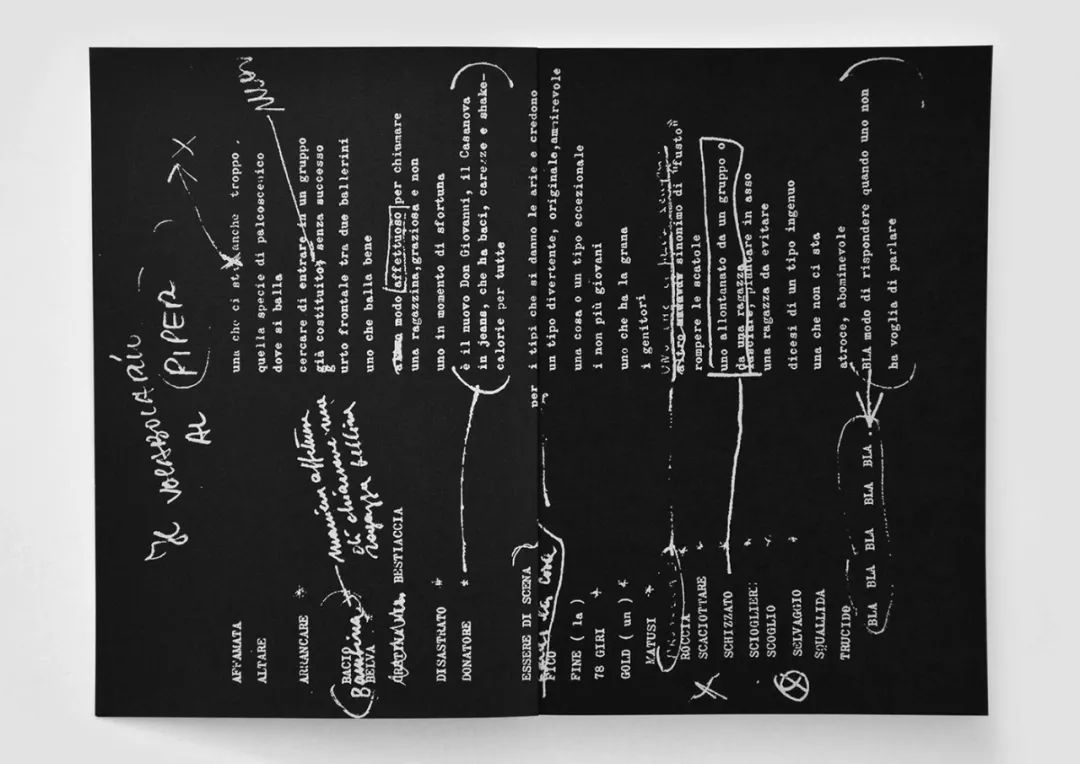 Il VOCABOLARIO
AL (PIPER)
AFFAMATA una che ci sta anche troppo.
ALTARE quella specie di palcoscenico
dove si balla
ARRANCARE * cercare di entrare in un gruppo
già costituito, senza successo
BACIF urto frontale tra due ballerini
Bambina maniera affettuosa
di chiamare una
ragazza bellina
BELVA uno che balla bene
BESTIACCIA modo affettuoso per chiamare
una ragazzina, graziosa e non
DISASTRATO * uno in momento di sfortuna
DONATORE * è il nuovo Don Giovanni, il Casanova
in jeans, che ha baci, carezze e shake-
calorie per tutte
ESSERE DI SCENA per i tipi che si danno le arie e credono
FICO un tipo divertente, originale, ammirevole
FINE ( la ) una cosa o un tipo eccezionale
78 GIRI * i non più giovani
GOLD ( un ) * uno che ha la grana
MATUSI * i genitori
ROCCIA * sinonimo di "fusto"
SCACIOTTARE * rompere le scatole
SCHIZZATO * uno allontanato da un gruppo o
da una ragazza
SCIOGLIERE * lasciare, piantare in asso
SCOGLIO * una ragazza da evitare
SELVAGGIO * dicesi di un tipo ingenuo
SQUALLIDA una che non ci sta
TRUCIDO atroce, abominevole
BLA BLA BLA BLA BLA BLA modo di rispondere quando uno non
ha voglia di parlare